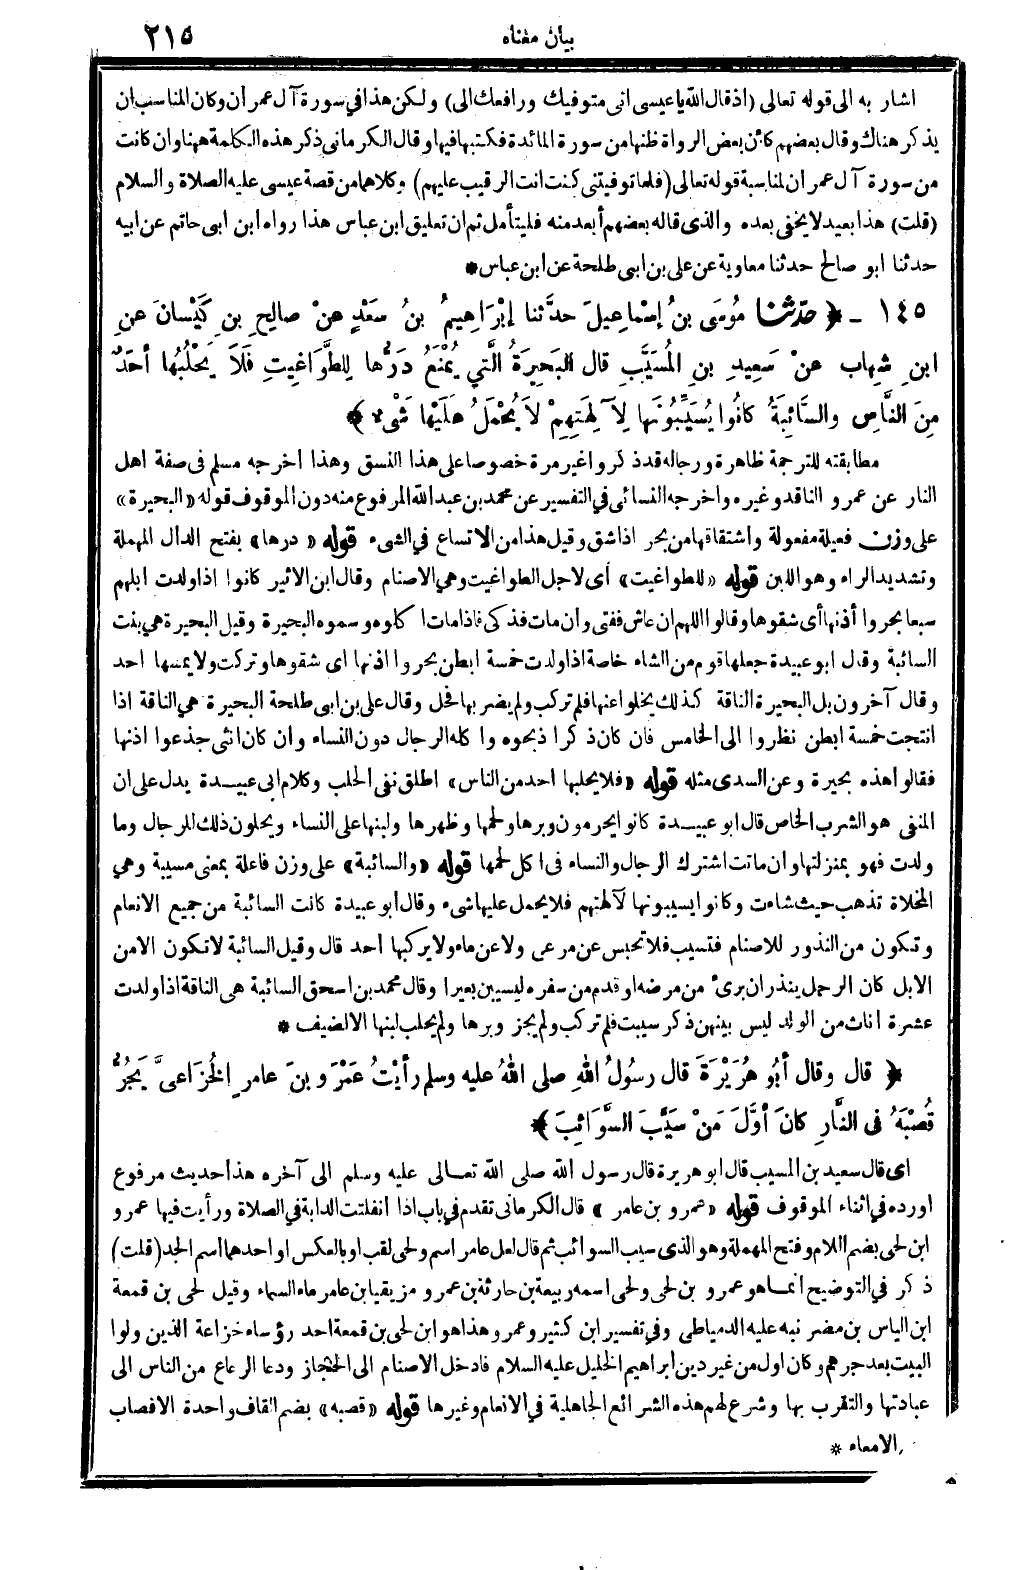 بيان معناه
٢١٥
اشار به الى قوله تعالى (اذ قال الله ياعيسى انى متوفيك ورافعك الى) ولكن هذا في سورة آل عمران وكان المناسب ان
يذكر هناك وقال بعضهم كأن بعض الرواة ظنها من سورة المائدة فكتبها فيها وقال الكرمانى ذكر هذه الكلمة ههنا وان كانت
من سورة آل عمران لمناسبة قوله تعالى (فلما توفيتنى كنت انت الرقيب عليهم) وكلاهما من قصة عيسى عليه الصلاة والسلام
(قلت) هذا بعيد لا يخفى بعده والذى قاله بعضهم أبعد منه فليتأمل ثم ان تعليق ابن عباس هذا رواه ابن ابى حاتم عن ابيه
حدثنا ابو صالح حدثنا معاوية عن على بن ابى طلحة عن ابن عباس*
١٤٥ - ﴿ حَدّثنا مُوسَى بنُ إِسْماعِيلَ حدَّثنا إبْرَاهِيمُ بنُ سَعْدٍ عنْ صالِحِ بنِ كَيْسانَ عنِ
ابنِ شِهاب عنْ سَعِيدِ بنِ المُسَيَّبِ قال البَحِيرَةُ الَّتي يُمْنَعُ دَرُّها لِلطَّوَاغِيتِ فَلاَ يَحْلُبُها أحَدٌ
مِنَ النَّاسِ والسَّائِبَةُ كانُوا يُسَيِّبُونَها لِآلِهَتِهِمْ لاَ يُحْمَلُ عَلَيْها شَيْء ﴾
مطابقته للترجمة ظاهرة ورجاله قد ذكروا غير مرة خصوصا على هذا النسق وهذا اخرجه مسلم فى صفة اهل
النار عن عمرو الناقد وغيره واخرجه النسائى في التفسير عن محمد بن عبد الله المرفوع منه دون الموقوف قوله «البحيرة»
على وزن فعيلة مفعولة واشتقاقها من بحر اذا شق وقيل هذا من الاتساع في الشىء قوله «درها» بفتح الدال المهملة
وتشديد الراء وهو اللبن قوله «للطواغيت» أى لاجل الطواغيت وهي الاصنام وقال ابن الاثير كانوا اذا ولدت ابلهم
سبعا بحروا أذنها أى شقوها وقالوا اللهم ان عاش ففتى وان مات فذكى فاذا مات اكلوه وسموه البحيرة وقيل البحيرة هي بنت
السائبة وقال ابو عبيدة جعلها قوم من الشاء خاصة اذا ولدت خمسة ابطن بحروا اذنها اى شقوها وتركت ولا يمسها احد
وقال آخرون بل البحيرة الناقة كذلك يخلوا عنها فلم تركب ولم يضربها فحل وقال على بن ابى طلحة البحيرة هي الناقة اذا
انتجت خمسة ابطن نظروا الى الخامس فان كان ذكرا ذبحوه واكله الرجال دون النساء وان كان انثى جذعوا اذنها
فقالوا هذه بحيرة وعن السدى مثله قوله «فلا يحلبها احد من الناس» اطلق نفى الحلب وكلام ابى عبيدة يدل على ان
المنفى هو الشرب الخاص قال ابو عبيدة كانوا يحرمون وبرها ولحمها وظهرها ولبنها على النساء ويحلون ذلك للرجال وما
ولدت فهو بمنزلتها وان ماتت اشترك الرجال والنساء فى اكل لحمها قوله «والسائبة» على وزن فاعلة بمعنى مسيبة وهي
المخلاة تذهب حيث شاءت وكانوا يسيبونها لآلهتهم فلا يحمل عليها شىء وقال ابو عبيدة كانت السائبة من جميع الانعام
وتكون من النذور للاصنام فتسيب فلا تحبس عن مرعى ولا عن ماء ولا يركبها احد قال وقيل السائبة لا تكون الا من
الابل كان الرجل ينذر ان برئ من مرضه او قدم من سفره ليسيبن بعيرا وقال محمد بن اسحق السائبة هى الناقة اذا ولدت
عشرة اناث من الولد ليس بينهن ذكر سيبت فلم تركب ولم يجز وبرها ولم يحلب لبنها الا لضيف *
﴿ قال وقال أبُو هُرَيْرَةَ قال رسُولُ اللهِ صلى اللهُ عليه وسلم رأيْتُ عَمْرَو بنَ عامرٍ الخُزَاعيَّ يَجُرُّ
قُصْبَهُ فى النَّارِ كانَ أوَّلَ مَنْ سَيَّبَ السَّوَائِبَ ﴾
اى قال سعيد بن المسيب قال ابو هريرة قال رسول الله صلى الله تعالى عليه وسلم الى آخره هذا حديث مرفوع
اورده في اثناء الموقوف قوله «عمرو بن عامر» قال الكرمانى تقدم في باب اذا انفلتت الدابة في الصلاة ورأيت فيها عمرو
ابن لحى بضم اللام وفتح المهملة وهو الذى سيب السوائب ثم قال لعل عامر اسم ولحى لقب او بالعكس او احدهما اسم الجد (قلت)
ذكر في التوضيح انما هو عمرو بن لحى ولحى اسمه ربيعة بن حارثة بن عمرو مزيقيا بن عامر ماء السماء وقيل لحى بن قمعة
ابن الياس بن مضر نبه عليه الدمياطى وفي تفسير ابن كثير وعمرو هذا هو ابن لحى بن قمعة احد رؤساء خزاعة الذين ولوا
البيت بعد جرهم وكان اول من غير دين ابراهيم الخليل عليه السلام فادخل الاصنام الى الحجاز ودعا الرعاع من الناس الى
عبادتها والتقرب بها وشرع لهم هذه الشرائع الجاهلية في الانعام وغيرها قوله «قصبه» بضم القاف واحدة الاقصاب
الامعاء *